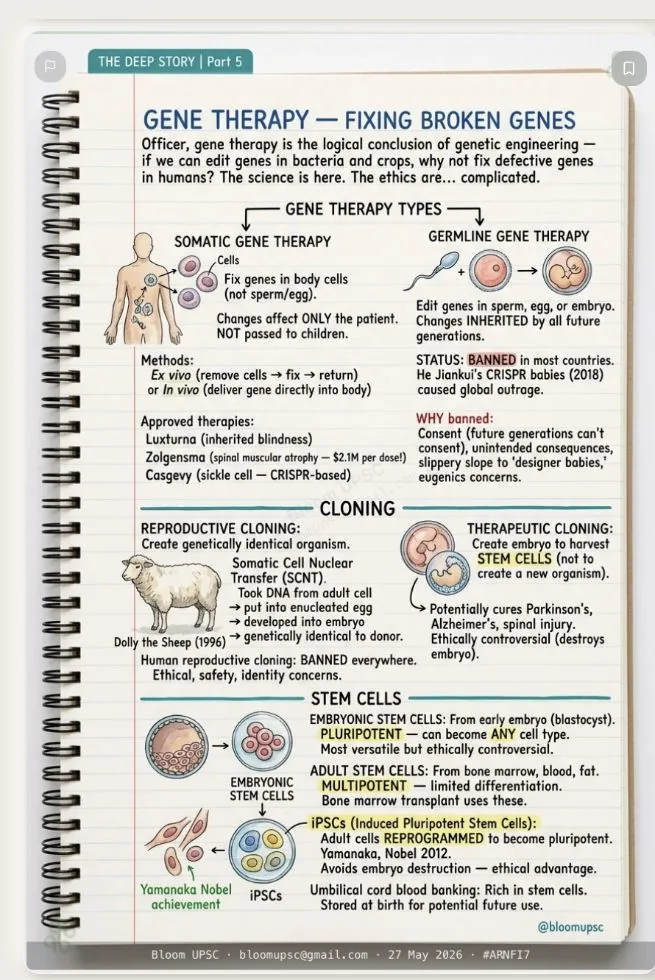 THE DEEP STORY | Part 5
GENE THERAPY — FIXING BROKEN GENES
Officer, gene therapy is the logical conclusion of genetic engineering —
if we can edit genes in bacteria and crops, why not fix defective genes
in humans? The science is here. The ethics are... complicated.
GENE THERAPY TYPES
SOMATIC GENE THERAPY
Cells
Fix genes in body cells
(not sperm/egg).
Changes affect ONLY the patient.
NOT passed to children.
Methods:
Ex vivo (remove cells → fix → return)
or In vivo (deliver gene directly into body)
Approved therapies:
Luxturna (inherited blindness)
Zolgensma (spinal muscular atrophy — $2.1M per dose!)
Casgevy (sickle cell — CRISPR-based)
GERMLINE GENE THERAPY
+
Edit genes in sperm, egg, or embryo.
Changes INHERITED by all future
generations.
STATUS: BANNED in most countries.
He Jiankui's CRISPR babies (2018)
caused global outrage.
WHY banned:
Consent (future generations can't
consent), unintended consequences,
slippery slope to 'designer babies,'
eugenics concerns.
CLONING
REPRODUCTIVE CLONING:
Create genetically identical organism.
Somatic Cell Nuclear
Transfer (SCNT).
Took DNA from adult cell
→ put into enucleated egg
→ developed into embryo
→ genetically identical to donor.
Dolly the Sheep (1996)
Human reproductive cloning: BANNED everywhere.
Ethical, safety, identity concerns.
THERAPEUTIC CLONING:
Create embryo to harvest
STEM CELLS (not to
create a new organism).
Potentially cures Parkinson's,
Alzheimer's, spinal injury.
Ethically controversial (destroys
embryo).
STEM CELLS
EMBRYONIC STEM CELLS: From early embryo (blastocyst).
PLURIPOTENT — can become ANY cell type.
Most versatile but ethically controversial.
EMBRYONIC
STEM CELLS
ADULT STEM CELLS: From bone marrow, blood, fat.
MULTIPOTENT — limited differentiation.
Bone marrow transplant uses these.
iPSCs (Induced Pluripotent Stem Cells):
Adult cells REPROGRAMMED to become pluripotent.
Yamanaka, Nobel 2012.
Avoids embryo destruction — ethical advantage.
Yamanaka Nobel
achievement
iPSCs
Umbilical cord blood banking: Rich in stem cells.
Stored at birth for potential future use.
@bloomupsc
Bloom UPSC · bloomupsc@gmail.com · 27 May 2026 · #ARNFI7